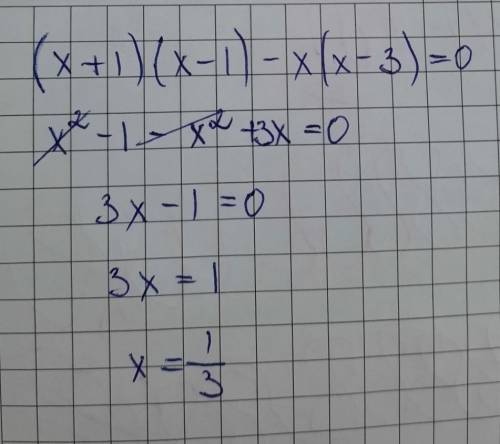 (x+1)(x-1)-x(x-3)=0
x²-1-x²+3x=0
3x-1=0
3x=1
x=1/3